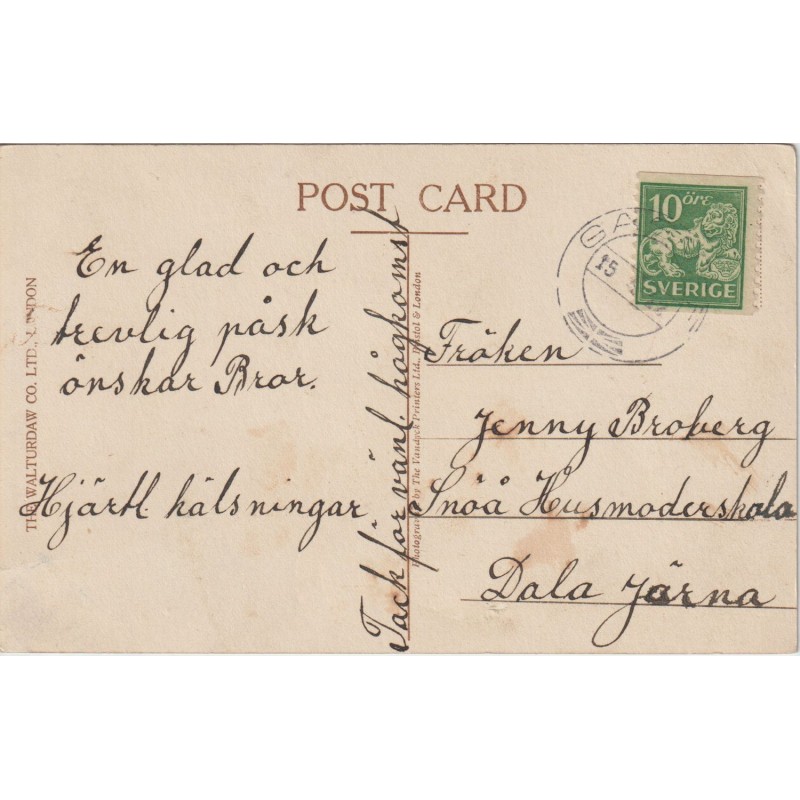 POST CARD
10 ÖRE
SVERIGE
15
En glad och
trevlig påsk
önskar Bror.
Hjärtl. hälsningar
Tack för vänl. hågkomst
Fröken
Jenny Broberg
Snöå Husmoderskola
Dala Järna
THE WALTURDAW CO. LTD., LONDON
Photogravure by The Vandyck Printers Ltd., Bristol & London